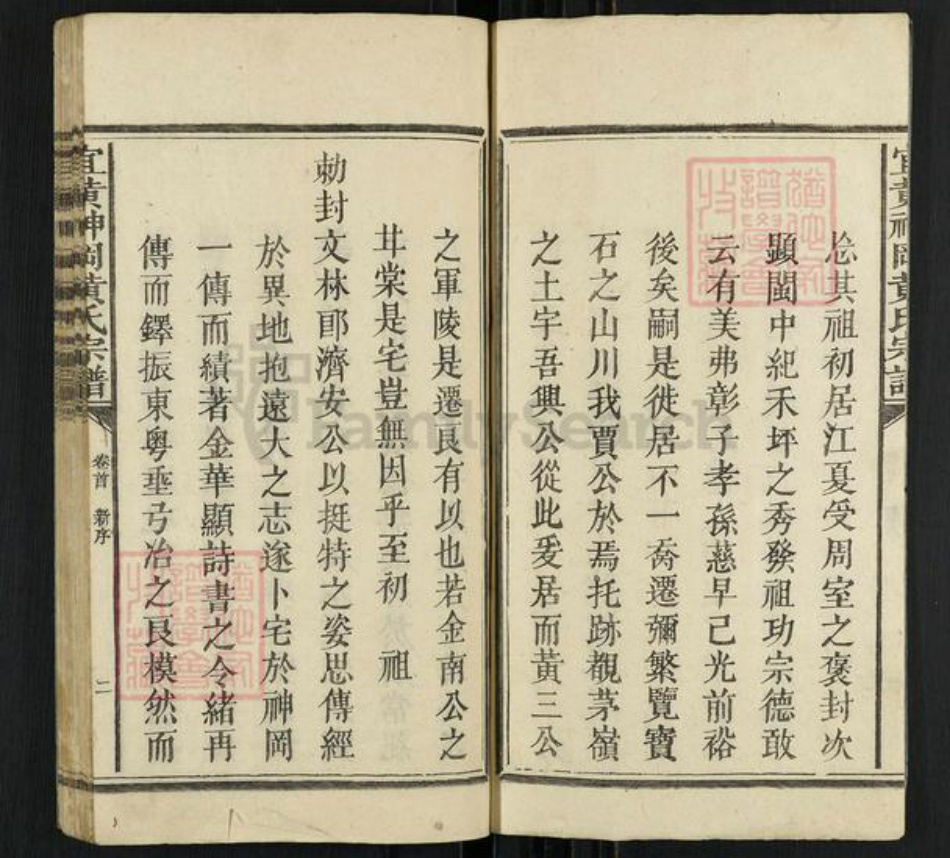 宜黃神岡黃氏宗譜
忩其祖初居江夏受周室之褒封次
顯閩中紀禾坪之秀發祖功宗德敢
云有美弗彰子孝孫慈早已光前裕
後矣嗣是徙居不一喬遷彌繁覽寶
石之山川我賈公於焉托跡覩茅嶺
之土宇吾興公從此爰居而黃三公
之軍陵是遷良有以也若金南公之
甘棠是宅豈無因乎至初 祖
勑封文林郎濟安公以挺特之姿思傳經
於異地抱遠大之志遂卜宅於神岡
一傳而績著金華顯詩書之令緒再
傳而鐸振東粤垂弓冶之良模然而
宜黃神岡黃氏宗譜
卷首 新序
二
FamilySearch